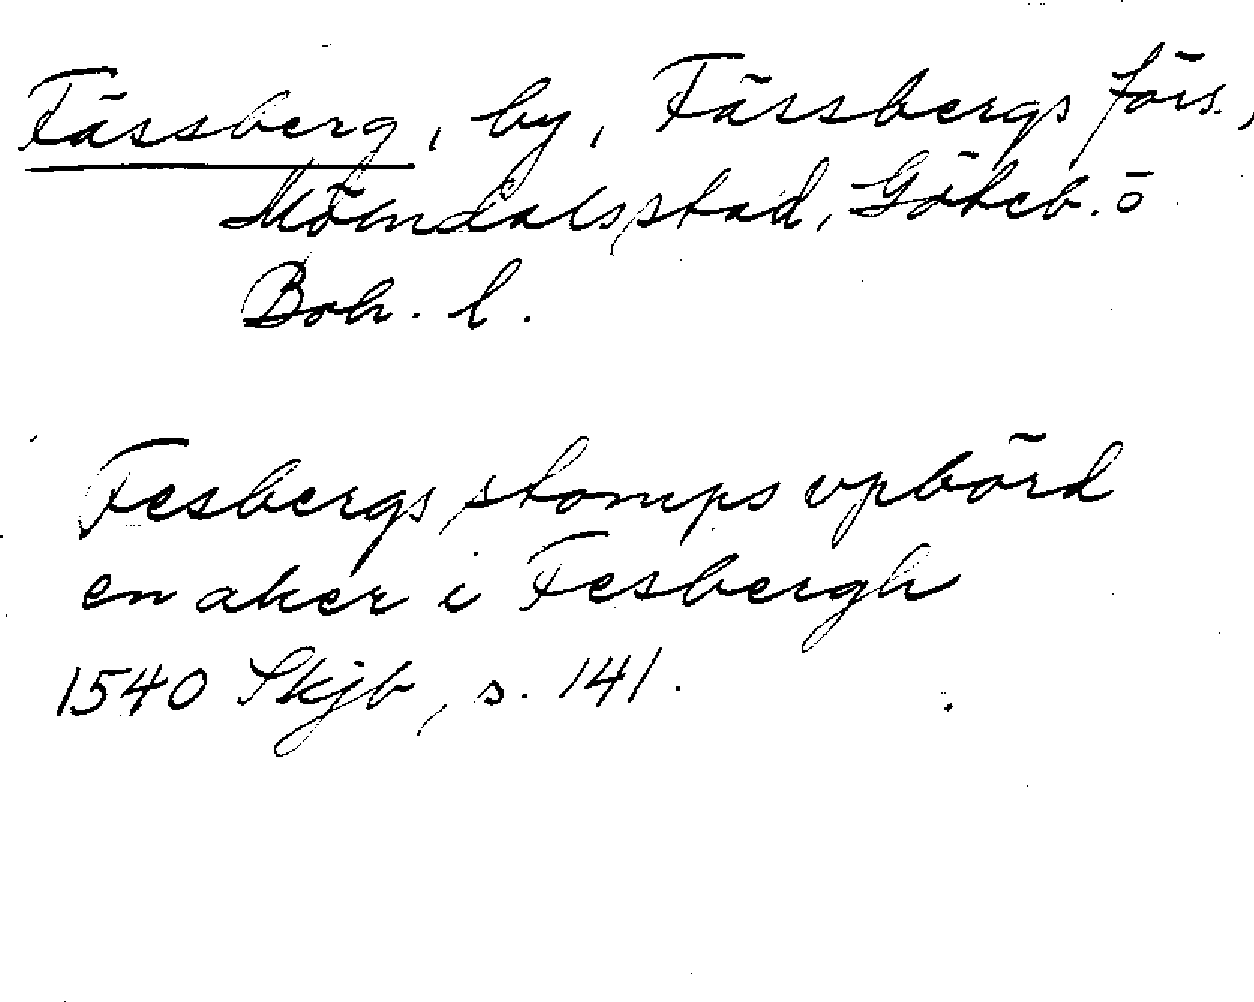 Fässberg, by, Fässbergs förs.,
Mölndals stad, Göteb. o
Boh. l.
Fesbergs stomps vpbörd
en aker i Fesbergh
1540 Skjb, s. 141.